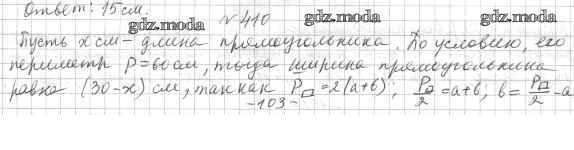 Ответ: 15 см.
gdz.moda gdz.moda gdz.moda
№ 410
Пусть x см – длина прямоугольника. По условию, его
периметр P = 60 см, тогда ширина прямоугольника
равна (30-x) см, так как P▭ = 2(a+b); P▭/2 = a+b; b = P▭/2 - a
-103-